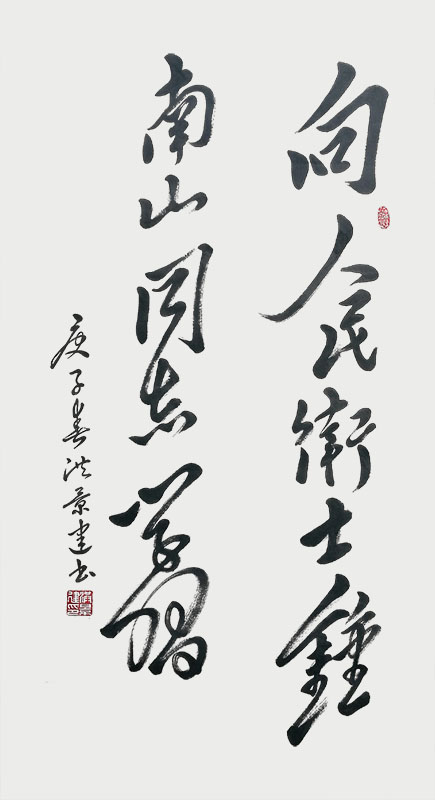 向人民衛士鍾
南山同志學習
庚子春洪景建书